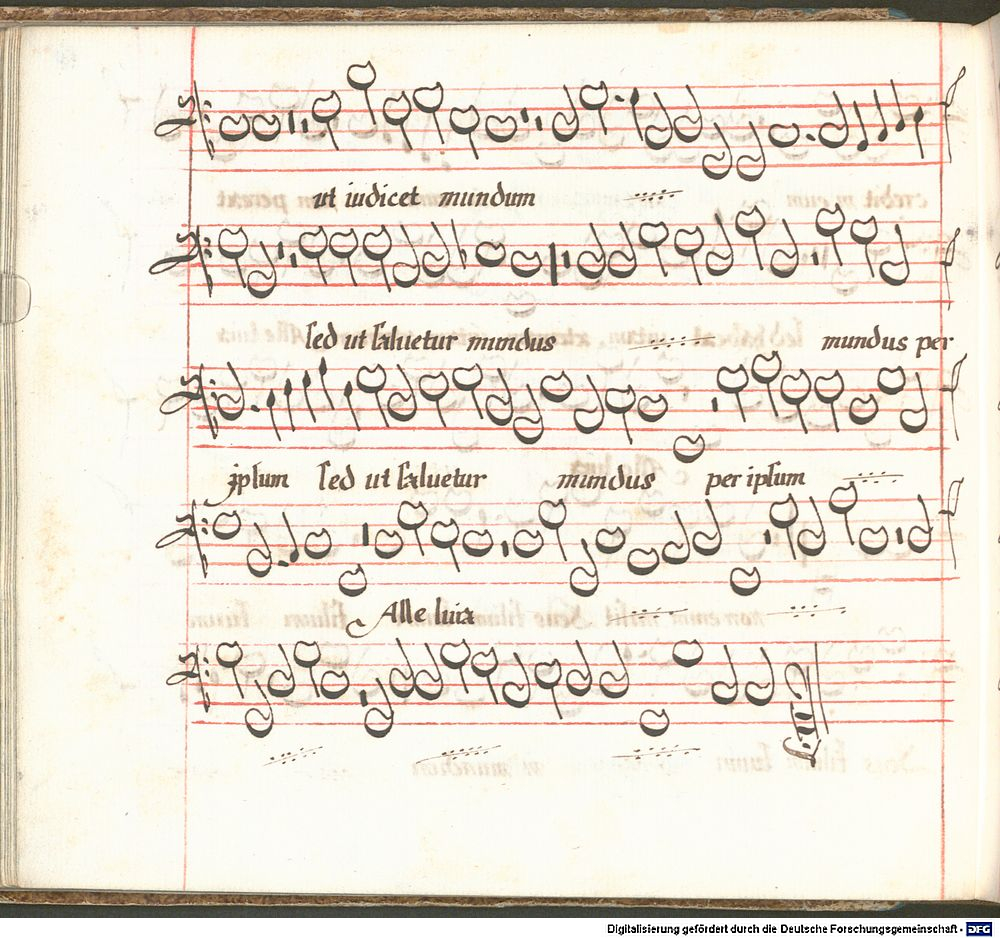 ut iudicet mundum
sed ut saluetur mundus mundus per
ipsum sed ut saluetur mundus per ipsum
Alleluia
Digitalisierung gefördert durch die Deutsche Forschungsgemeinschaft - DFG